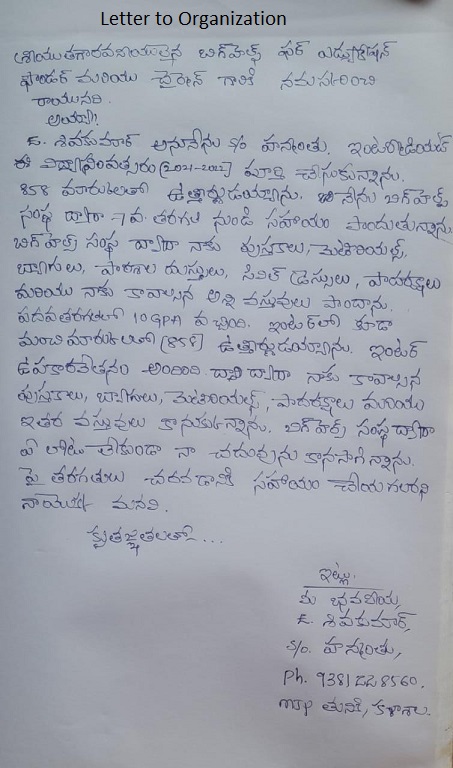 Letter to Organization
శ్రీయుతగౌరవనీయులైన బిగ్‌హెల్ప్ ఫర్ ఎడ్యుకేషన్
ఫౌండర్ మరియు చైర్మన్ గారికి నమస్కరించి
రాయునది.
అయ్యా!
E. శివకుమార్ అనునేను S/o హన్మంతు. ఇంటర్మీడియట్
ఈ విద్యాసంవత్సరం (2021-2022) పూర్తి చేసుకున్నాను.
858 మార్కులతో ఉత్తీర్ణుడయ్యాను. నేను బిగ్‌హెల్ప్
సంస్థ ద్వారా 7వ తరగతి నుండి సహాయం పొందుతున్నాను.
బిగ్‌హెల్ప్ సంస్థ ద్వారా నాకు పుస్తకాలు, మెటీరియల్స్,
బ్యాగులు, పాఠశాల దుస్తులు, సివిల్ డ్రెస్సులు, పాదరక్షాలు
మరియు నాకు కావాల్సిన అన్ని వస్తువులు పొందాను.
పదవతరగతిలో 10GPA వచ్చింది. ఇంటర్‌లో కూడా
మంచిమార్కులతో (858) ఉత్తీర్ణుడయ్యాను. ఇంటర్
ఉపకారవేతనం అందింది. దాని ద్వారా నాకు కావాల్సిన
పుస్తకాలు, బ్యాగులు, మెటీరియల్స్, పాదరక్షాలు మరియు
ఇతర వస్తువులు కొనుకున్నాను. బిగ్‌హెల్ప్ సంస్థ ద్వారా
ఏ లోటు లేకుండా నా చదువును కొనసాగిన్నాను.
పై తరగతులు చదవడానికి సహాయం చేయగలరని
నాయొక్క మనవి.
కృతజ్ఞతలతో...
ఇట్లు,
మీ భవదీయ,
E. శివకుమార్,
S/o. హన్మంతు,
Ph. 9381228560.
MJP తునికి, కళాశాల.